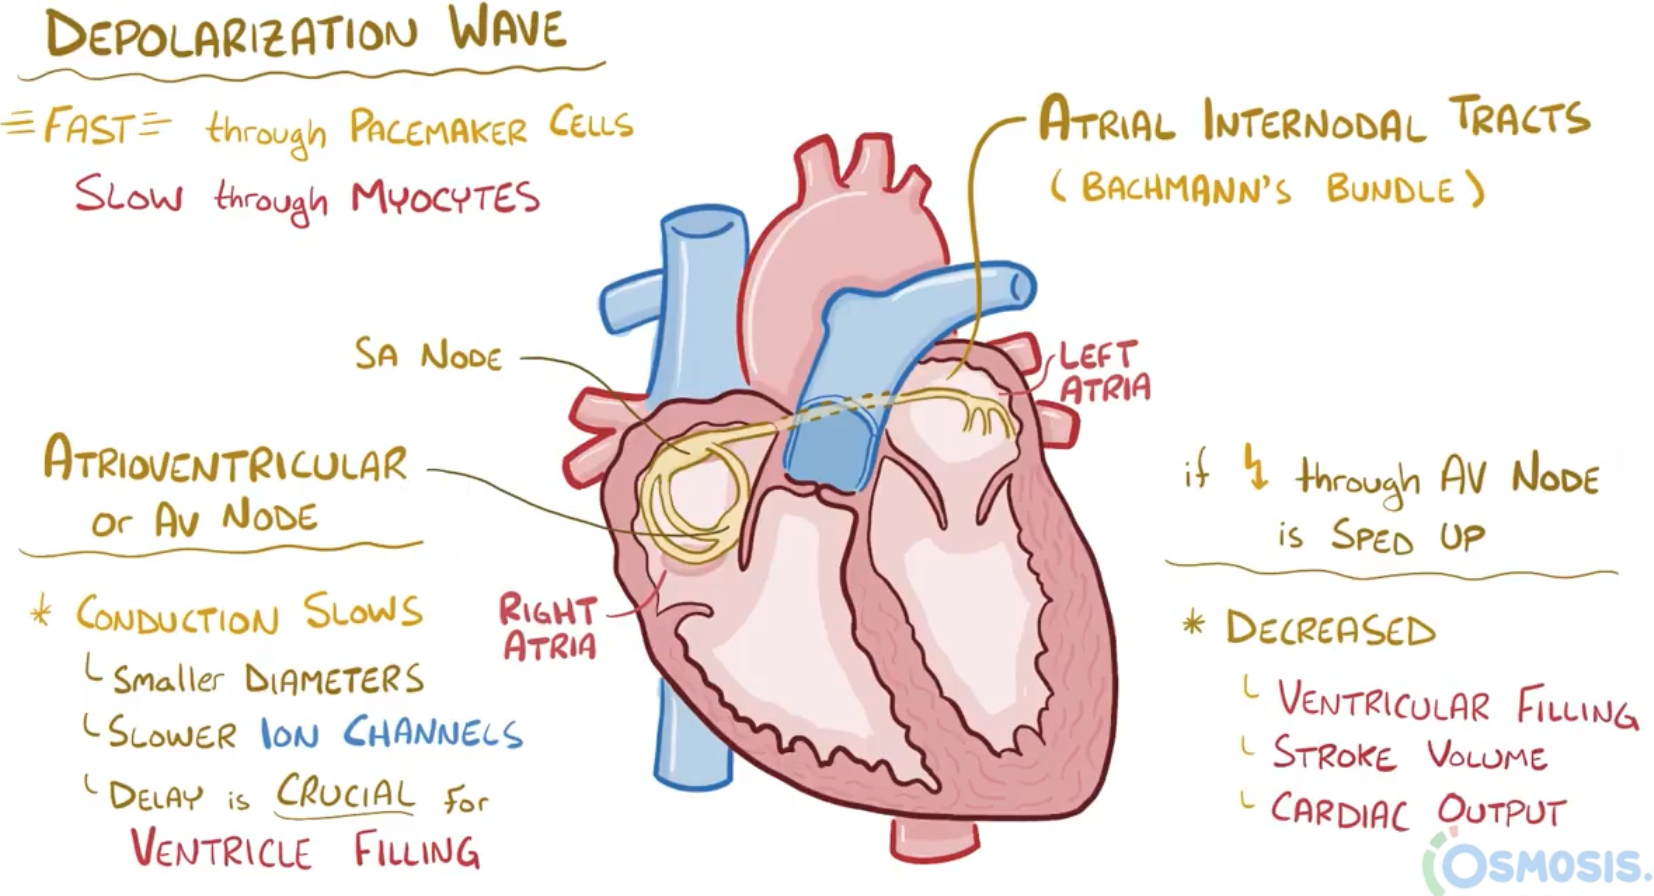 DEPOLARIZATION WAVE
FAST through PACEMAKER CELLS
SLOW through MYOCYTES
ATRIAL INTERNODAL TRACTS
(BACHMANN'S BUNDLE)
SA NODE
LEFT
ATRIA
ATRIOVENTRICULAR
or AV NODE
* CONDUCTION SLOWS
Smaller DIAMETERS
SLOWER ION CHANNELS
DELAY is CRUCIAL for
VENTRICLE FILLING
RIGHT
ATRIA
if through AV NODE
is SPED UP
* DECREASED
VENTRICULAR FILLING
STROKE VOLUME
CARDIAC OUTPUT
OSMOSIS.